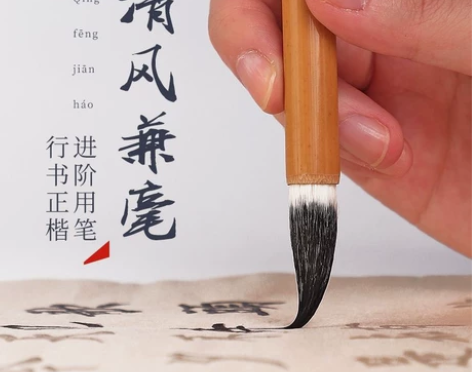 清风兼毫
Qīng
fēng
jiān
háo
进阶用笔
行书正楷